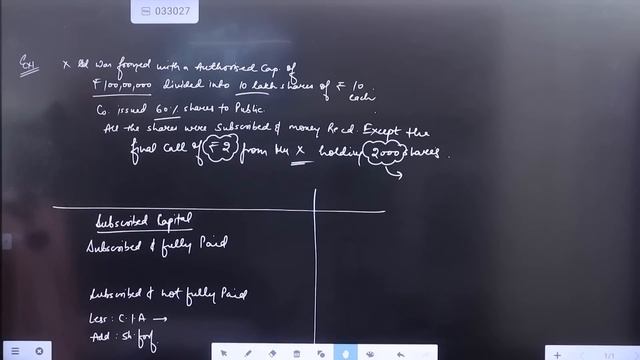 033027
Ex1 X Ltd was formed with a Authorised Cap. of
₹ 100,00,000 divided into 10 lakh shares of ₹ 10 each
Co. issued 60% shares to Public.
All the shares were Subscribed & money Recd. Except the
final Call of ₹ 2 from Mr X holding 2000 shares.
Subscribed Capital
Subscribed & fully Paid
Subscribed & not fully Paid
Less : C.I.A →
Add : Sh. forf.
1/1